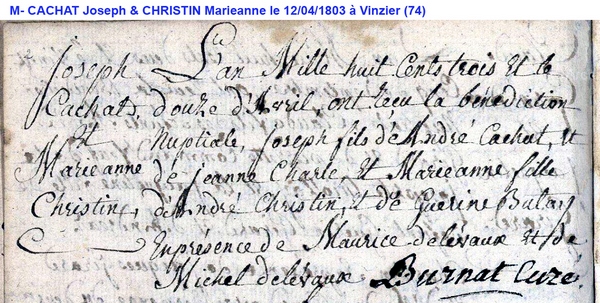 M- CACHAT Joseph & CHRISTIN Marieanne le 12/04/1803 à Vinzier (74)
Joseph L'an Mille huit Cents trois Et le
Cachat, douze d'Avril, ont reçu la bénédiction
Et Nuptiale, Joseph fils d'André Cachat, et
Marieanne de jeanne Charle, Et Marieanne fille
Christin, d'André Christin, et de Guerine
En présence de Maurice delévaux et de
Michel delévaux Burnat Curé.